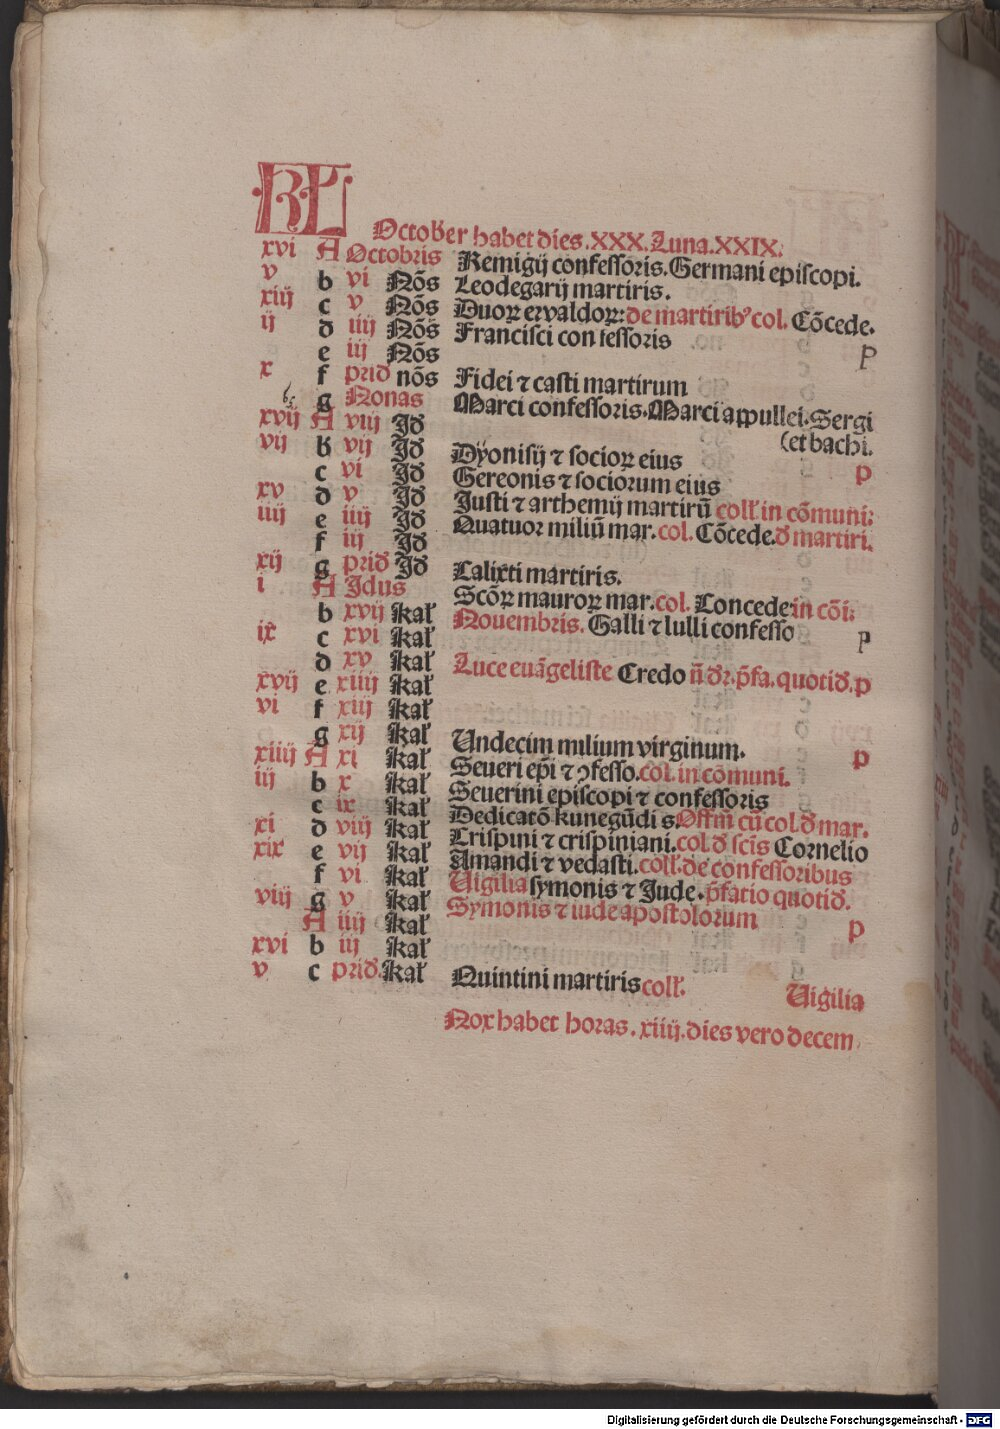 KL
October habet dies .XXX. Luna .XXIX.
xvi A Octobris Remigij confessoris. Germani episcopi.
v b vi Nōs Leodegarij martiris.
xiij c v Nōs Duoꝝ ervaldoꝝ: de martiribꝰ col. Cōcede.
ij d iiij Nōs Francisci confessoris
e iij Nōs p
x f prid nōs Fidei ⁊ casti martirum
g Nonas Marci confessoris. Marci appullei. Sergi
xvij A viij Jd (et bachi.
vij b vij Jd Dyonisij ⁊ socioꝝ eius
c vi Jd Gereonis ⁊ sociorum eius p
xv d v Jd Justi ⁊ arthemij martirū coll' in cōmuni:
iiij e iiij Jd Quatuor miliū mar. col. Cōcede. d martiri.
f iij Jd
xij g prid Jd Calixti martiris.
i A Jdus Scōꝝ mauroꝝ mar. col. Concede in cōi:
b xvij kal' Nouembris. Galli ⁊ lulli confesso p
ix c xvi kal'
d xv kal' Luce euāgeliste Credo ñ dꝛ. p̄fa. quotid. p
xvij e xiiij kal'
vi f xiij kal'
g xij kal' Undecim milium virginum. p
xiiij A xi kal' Seueri ep̄i ⁊ ꝯfesso. col. in cōmuni.
iij b x kal' Seuerini episcopi ⁊ confessoris
c ix kal' Dedicatō kunegūdi s. Offm cū col. d mar.
xi d viij kal' Crispini ⁊ crispiniani. col. d scīs Cornelio
xix e vij kal' Amandi ⁊ vedasti. coll'. de confessoribus
f vi kal' Uigilia symonis ⁊ Jude. p̄fatio quotid.
viij g v kal' Symonis ⁊ iude apostolorum p
A iiij kal'
xvi b iij kal'
v c prid. kal' Quintini martiris coll'. Uigilia
Nox habet horas. xiiij. dies vero decem
Digitalisierung gefördert durch die Deutsche Forschungsgemeinschaft - DFG